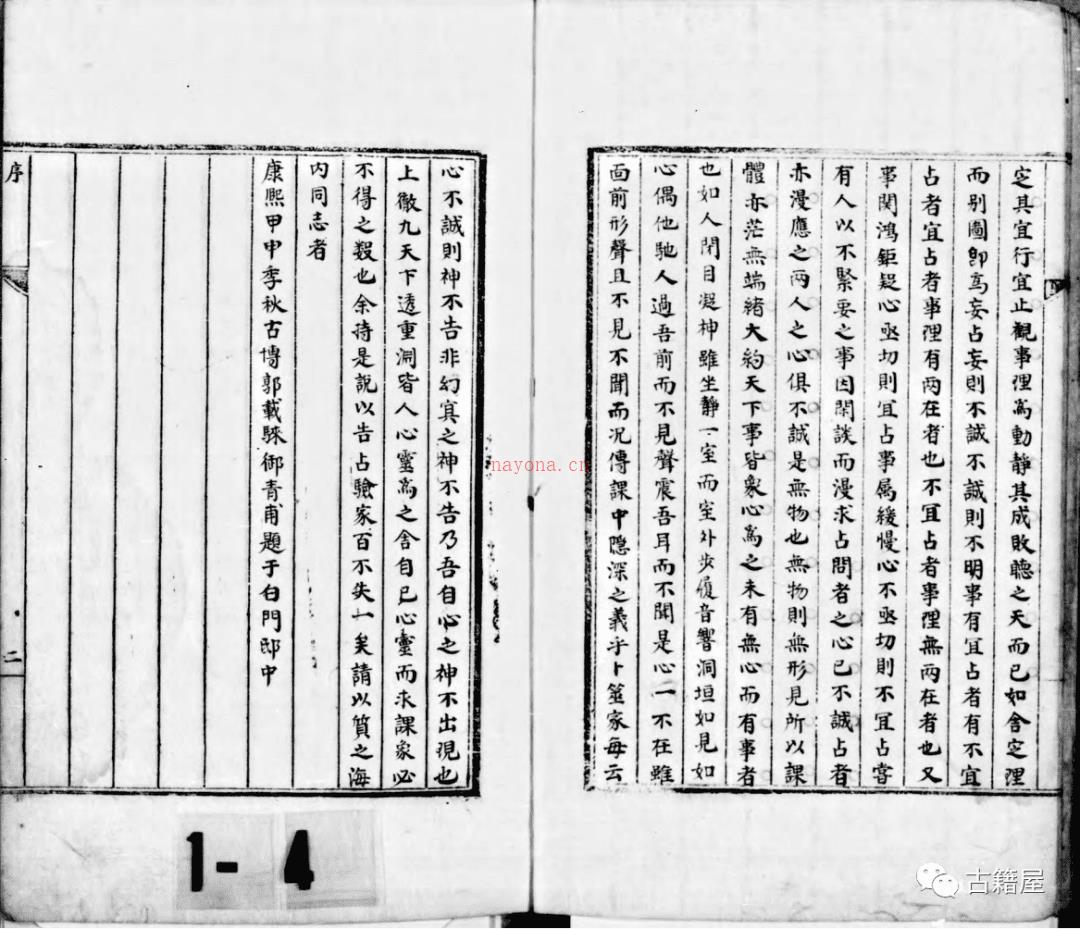 定其宜行宜止觀事理爲動靜其成敗聽之天而已如舍定理
而别圖卽爲妄占妄則不誠不誠則不明事有宜占者有不宜
占者宜占者事理有两在者也不宜占者事理無两在者也又
事関鴻鉅疑心亟切則宜占事属緩慢心不亟切則不宜占嘗
有人以不緊要之事因閑談而漫求占問者之心已不誠占者
亦漫應之两人之心俱不誠是無物也無物則無形見所以課
體亦茫無端緒大約天下事皆衆心爲之未有無心而有事者
也如人閉目凝神雖坐静一室而室外步履音響洞垣如見如
心偶他馳人過吾前而不見聲震吾耳而不聞是心一不在雖
面前形聲且不見不聞而况傳課中隱深之義乎卜筮家每云
心不誠則神不告非幻寘之神不告乃吾自心之神不出現也
上徹九天下透重淵皆人心靈爲之舍自已心靈而求課家必
不得之數也余持是說以告占驗家百不失一矣請以質之海
内同志者
康熙甲申季秋古博郭載騋御青甫題于白門邸中
序
二
1- 4
nayona.cn
古籍屋